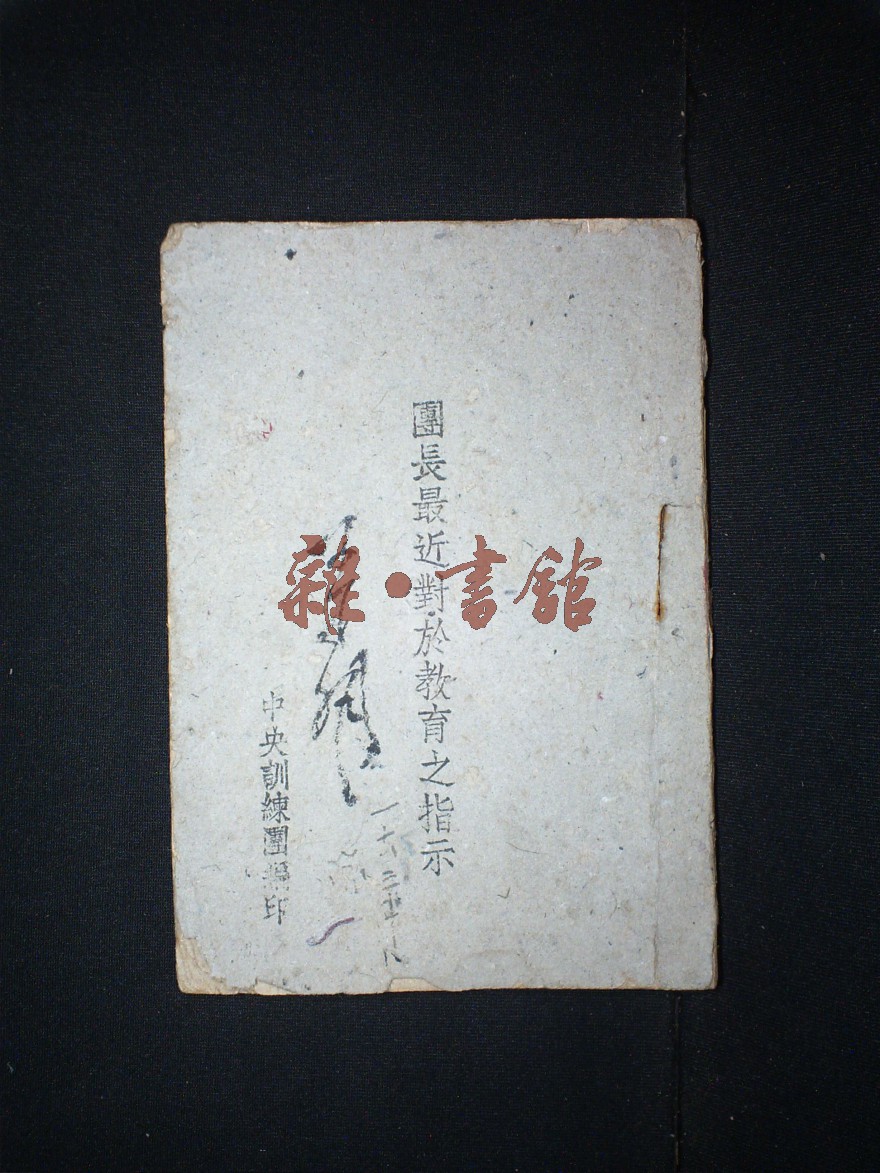 團長最近對於教育之指示
中央訓練團編印
雜·書館